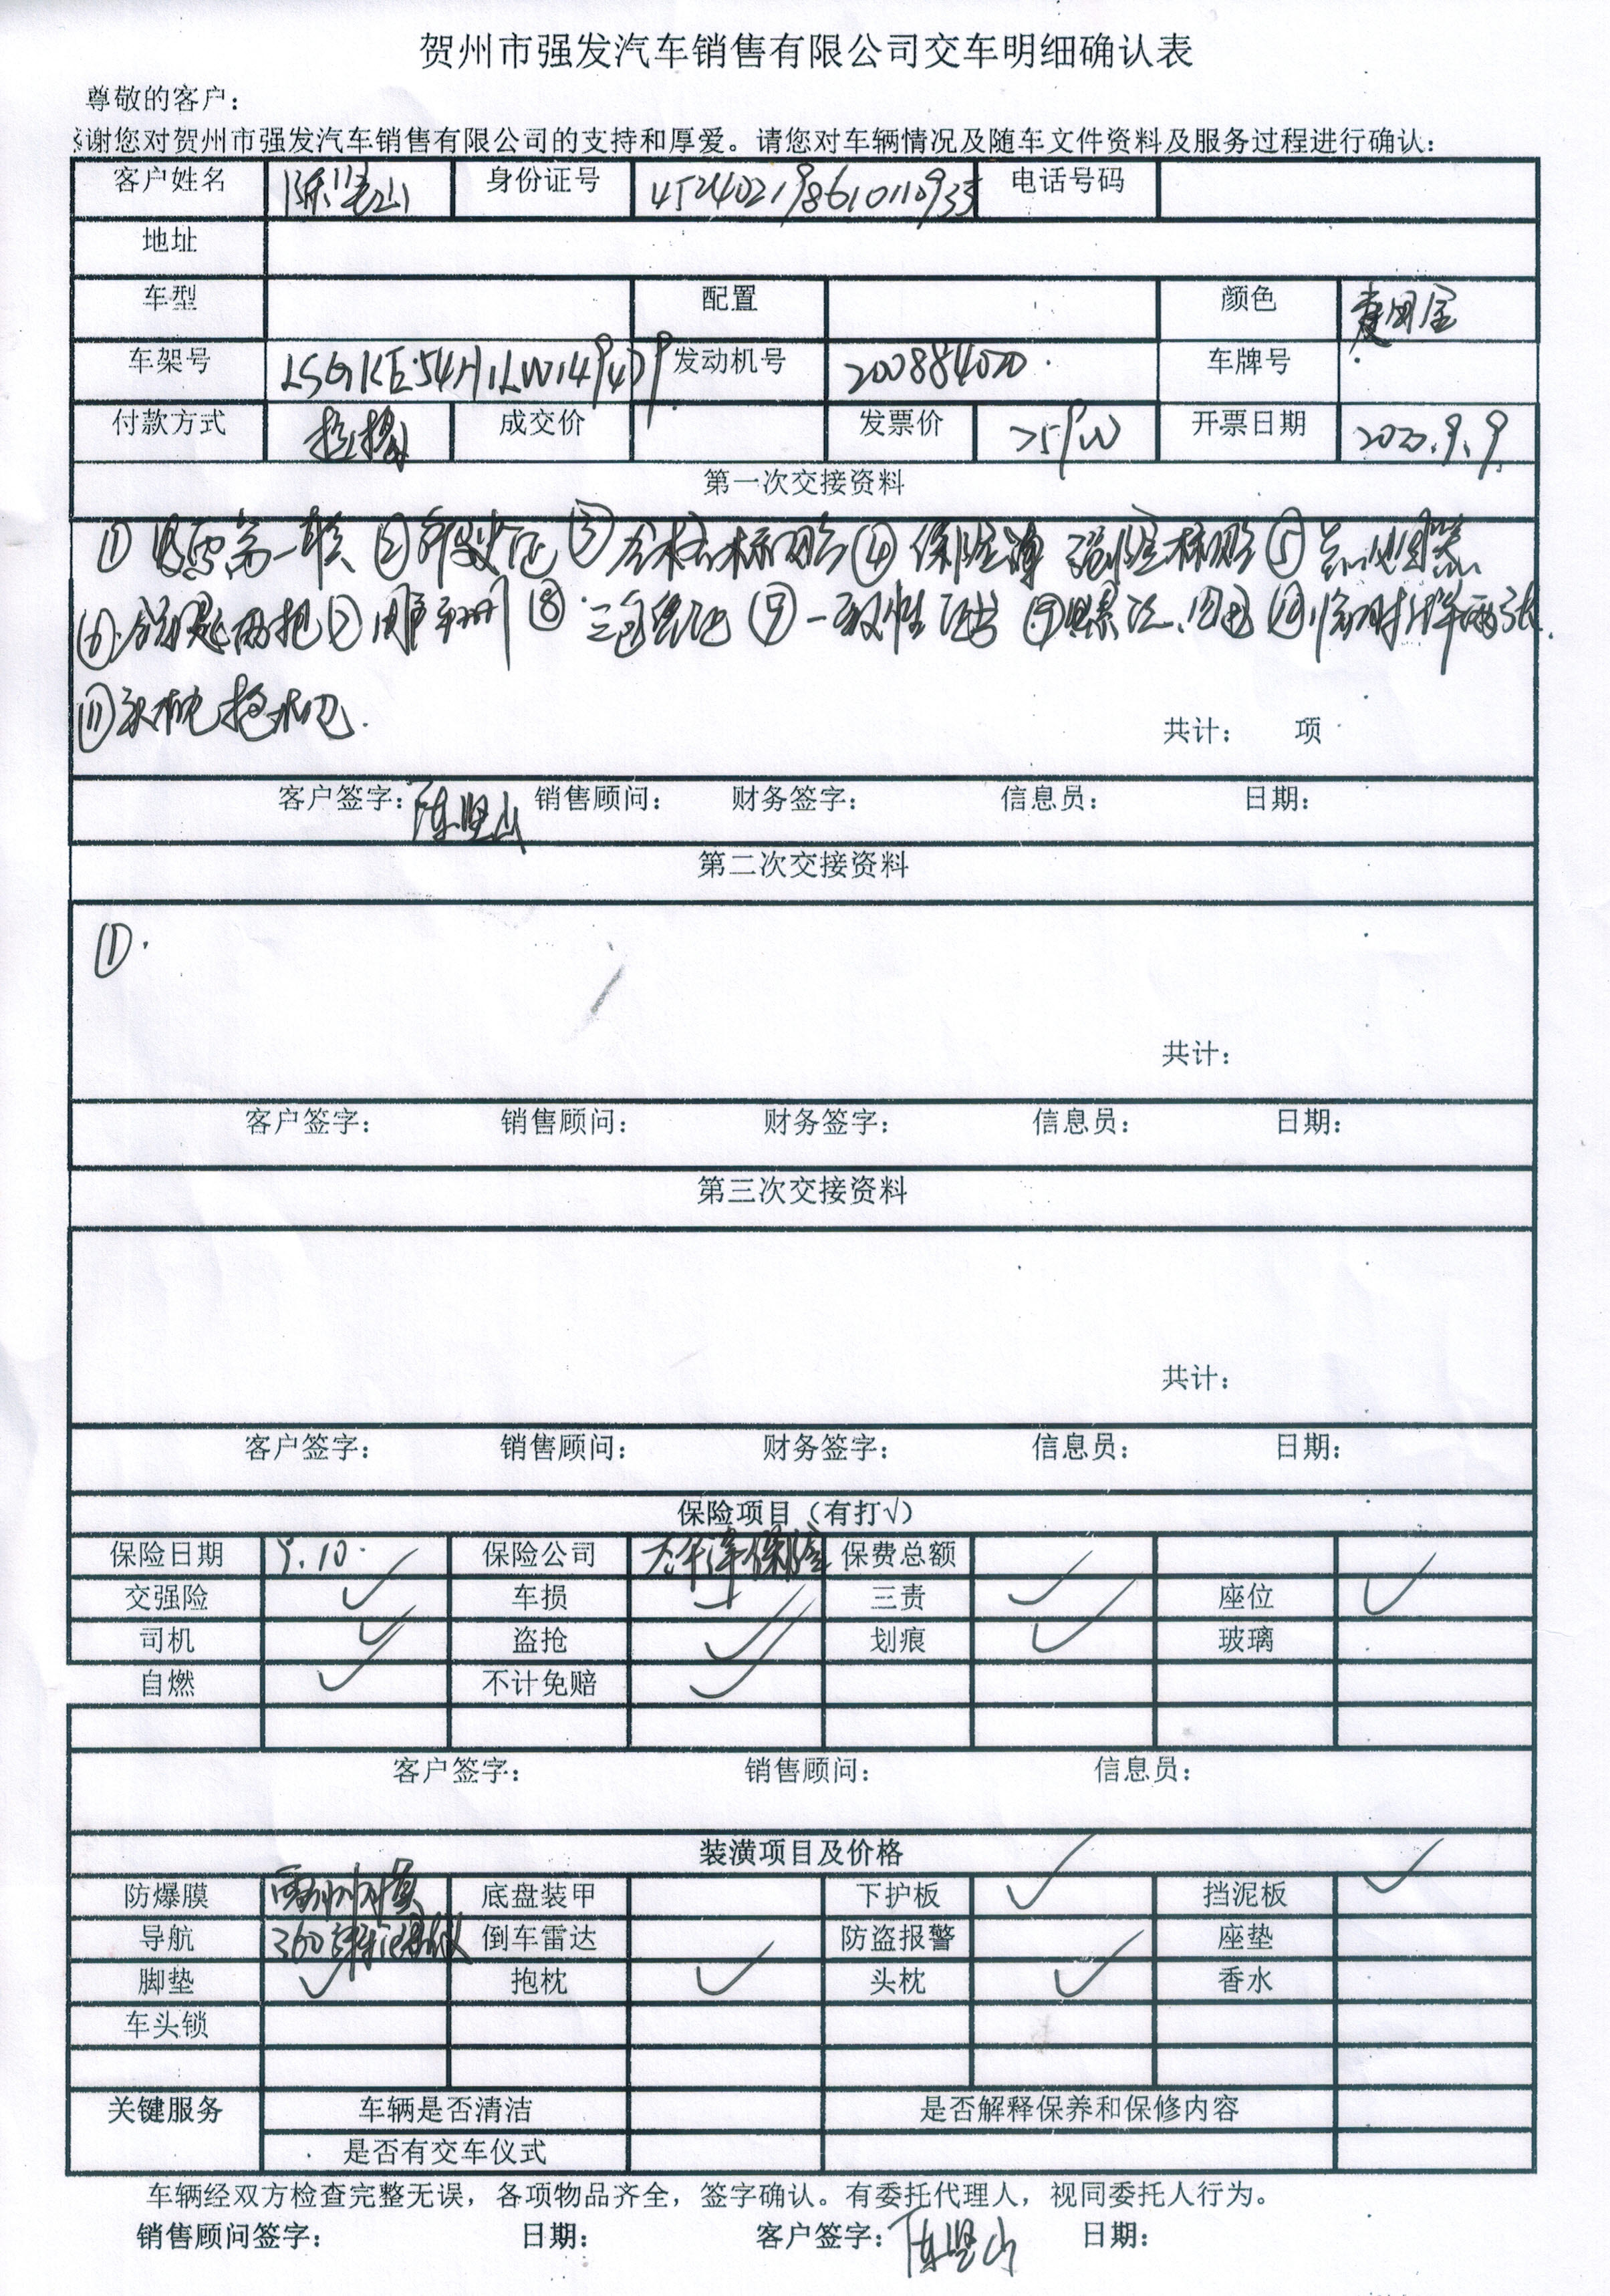 贺州市强发汽车销售有限公司交车明细确认表
尊敬的客户：
感谢您对贺州市强发汽车销售有限公司的支持和厚爱。请您对车辆情况及随车文件资料及服务过程进行确认：
客户姓名 陈坚山 身份证号 452402198610110933 电话号码
地址
车型 配置 颜色
车架号 发动机号 200884020 车牌号
付款方式 按揭 成交价 发票价 开票日期 2020.9.9
第一次交接资料
① 发票第一联 ② ③ 合格证 ④ 保险单 强险标 ⑤
⑥ 钥匙两把 ⑦ 手册 ⑧ 三包凭证 ⑨ 一致性证书 ⑩ 临时牌两张.
⑪
共计： 项
客户签字：陈坚山 销售顾问： 财务签字： 信息员： 日期：
第二次交接资料
①.
共计：
客户签字： 销售顾问： 财务签字： 信息员： 日期：
第三次交接资料
共计：
客户签字： 销售顾问： 财务签字： 信息员： 日期：
保险项目（有打√）
保险日期 9.10. 保险公司 太平洋保险 保费总额
交强险 ✓ 车损 ✓ 三责 ✓ 座位 ✓
司机 ✓ 盗抢 ✓ 划痕 ✓ 玻璃
自燃 ✓ 不计免赔 ✓
客户签字： 销售顾问： 信息员：
装潢项目及价格
防爆膜 底盘装甲 下护板 ✓ 挡泥板 ✓
导航 360 记录仪 倒车雷达 防盗报警 座垫
脚垫 ✓ 抱枕 ✓ 头枕 ✓ 香水
车头锁
关键服务 车辆是否清洁 是否解释保养和保修内容
是否有交车仪式
车辆经双方检查完整无误，各项物品齐全，签字确认。有委托代理人，视同委托人行为。
销售顾问签字： 日期： 客户签字：陈坚山 日期：